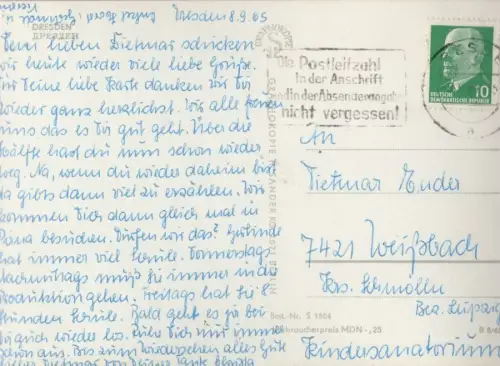 Dresden 8.9.65
DRESDEN
ДРЕЗДЕН
Dem lieben Dietmar schicken
wir heute wieder viele liebe Grüße.
Für Deine liebe Karte danken wir Dir
wieder ganz herzlichst. Wir alle freuen
uns das es Dir gut geht. Über die
Hälfte hast du nun schon wieder
weg. Na, wenn du wieder daheim bist
da gibts dann viel zu erzählen. Wir
kommen Dich dann gleich mal in
besuchen. Dürfen wir das?
hat immer viel Schule. Donnerstags
Nachmittags muß sie immer in die
Produktion gehen. Freitags hat sie 8
Stunden Schule. Bald geht es ja bei
Dir auch wieder los. Ruhe Dich nur immer
schön aus. Bis zum Wiedersehen alles Gute
lieber Dietmar von Deiner Tante
Die Postleitzahl
in der Anschrift
und in der Absenderangabe
nicht vergessen!
DEUTSCHE
DEMOKRATISCHE REPUBLIK
10
An
Dietmar
7421 Weißbach
Krs. Schmölln
Bez. Leipzig
Kindersanatorium
Best.-Nr. S 1604
Verbraucherpreis MDN -,25